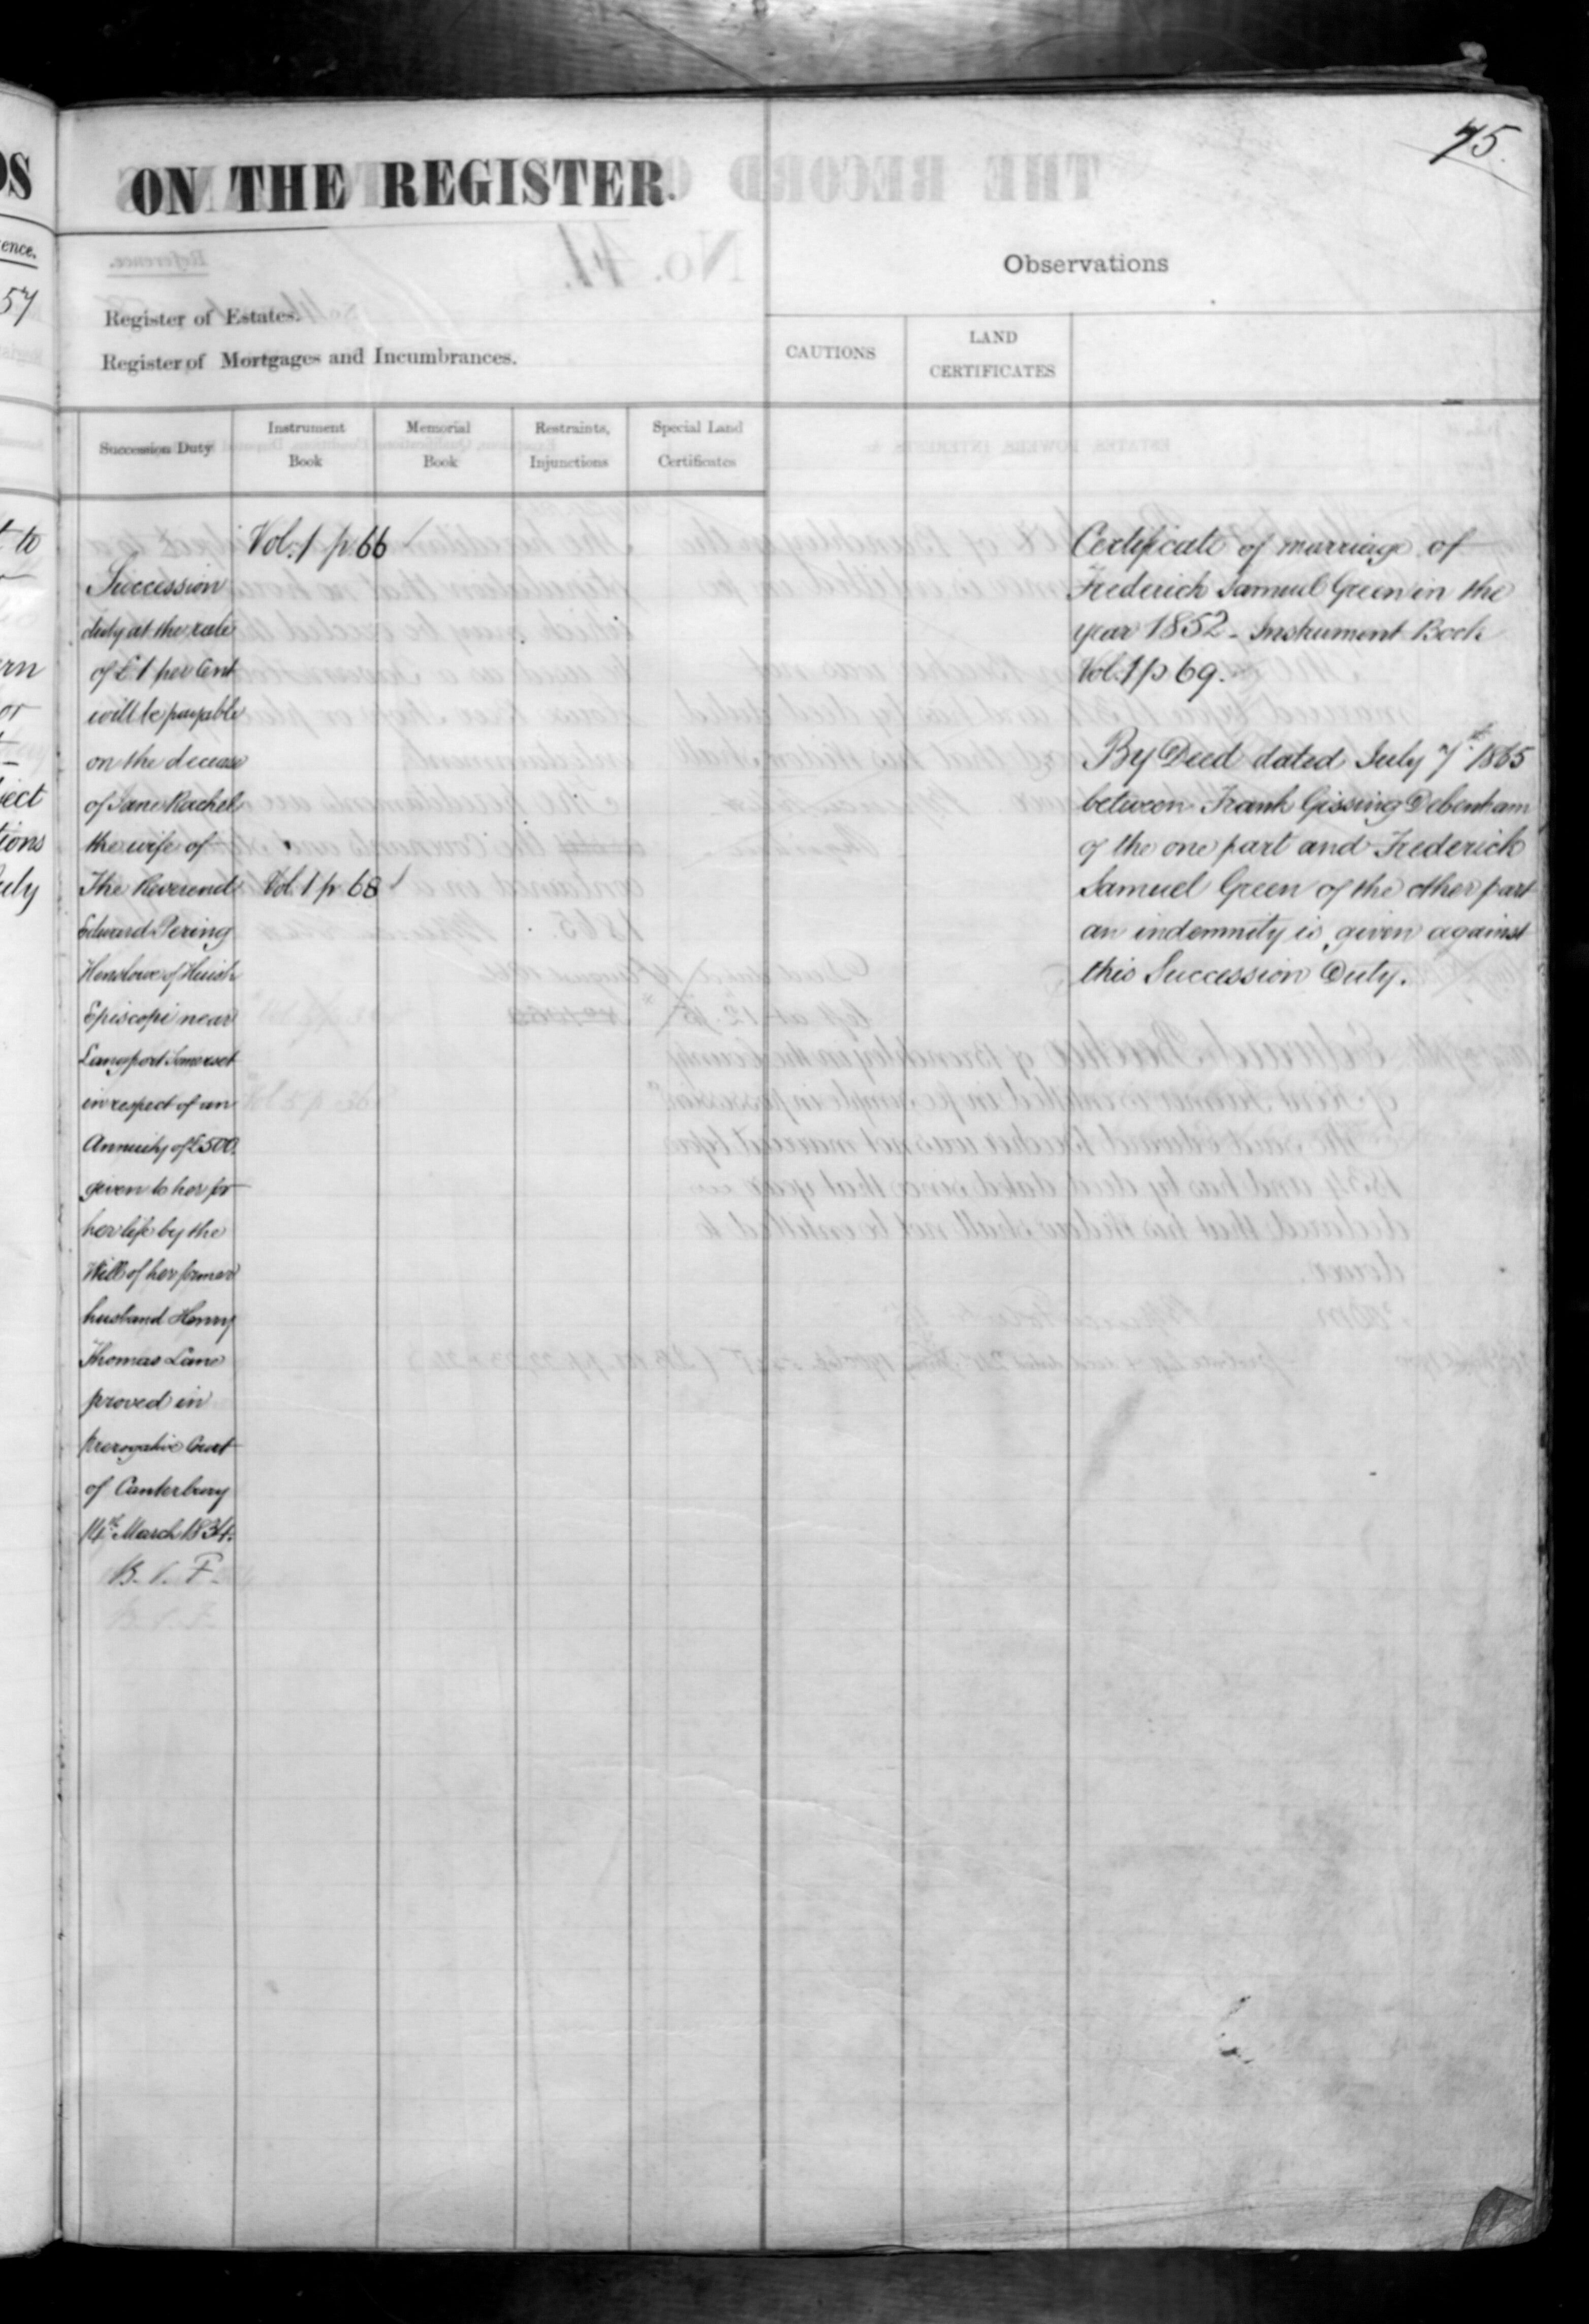 75.
ON THE REGISTER.
Observations
Register of Estates.
Register of Mortgages and Incumbrances.
CAUTIONS
LAND
CERTIFICATES
Succession Duty
Instrument
Book
Memorial
Book
Restraints,
Injunctions
Special Land
Certificates
Succession
duty at the rate
of £1 per Cent
will be payable
on the decease
of Jane Rachel
the wife of
The Reverend
Edward Pering
Henslowe of Huish
Episcopi near
Langport Somerset
in respect of an
Annuity of £500.
given to her for
her life by the
Will of her former
husband Henry
Thomas Lane
proved in
Prerogative Court
of Canterbury
14th March 1834.
Vol. 1 p 66
Vol. 1 p 68
Certificate of marriage of
Frederick Samuel Green in the
year 1852 - Instrument Book
Vol. 1 p 69.
By Deed dated July 7th 1865
between Frank Gissing Debenham
of the one part and Frederick
Samuel Green of the other part
an indemnity is given against
this Succession Duty.
ence.
57
t to
ject
tions